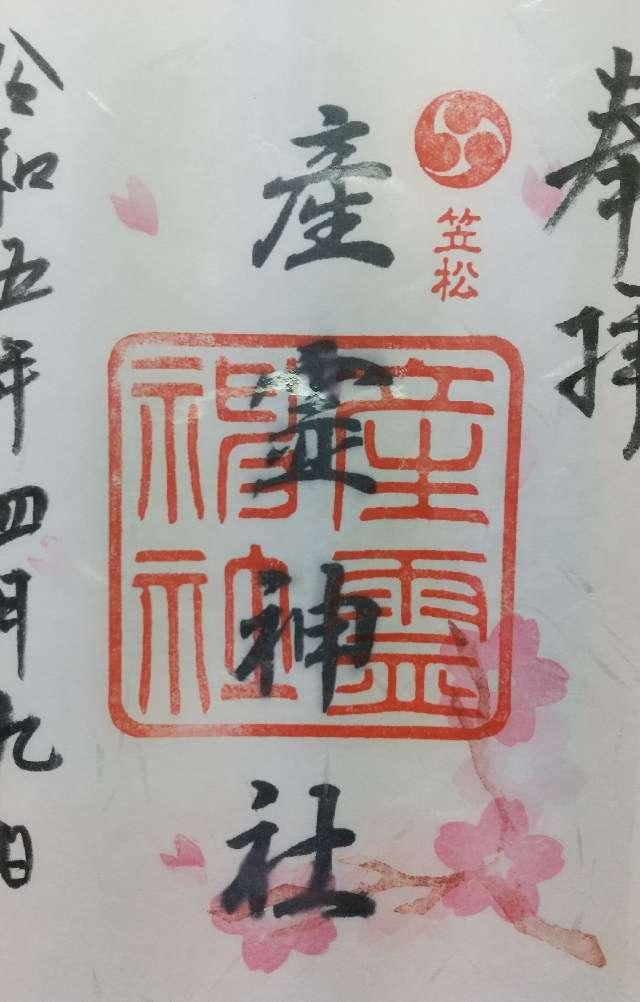 奉拝
笠松
産霊神社
産霊神社
令和五年四月九日